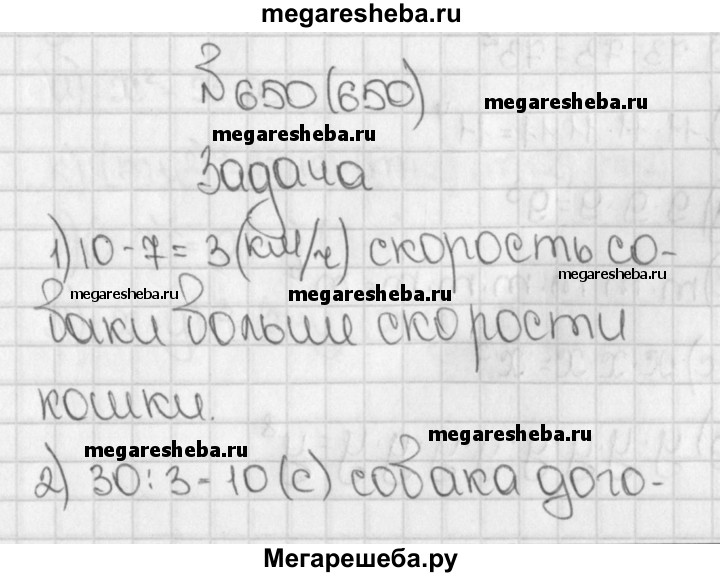 megaresheba.ru
№ 650 (650)
megaresheba.ru
megaresheba.ru
Задача
1) 10 - 7 = 3 (км/ч) скорость со-
megaresheba.ru
megaresheba.ru
megaresheba.ru
баки больше скорости
кошки.
megaresheba.ru
megaresheba.ru
2) 30 : 3 = 10 (с) собака дого-
Мегарешеба.ру